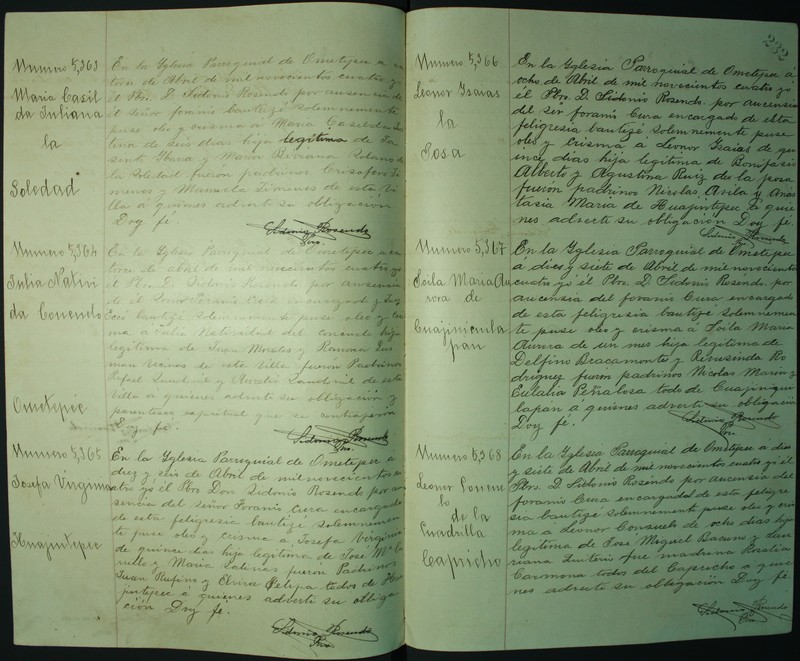 Numero 5,363
Maria Casil
da Juliana
la
Soledad
En la Yglesia Parroquial de Ometepec a ca
torce de Abril de mil novecientos cuatro yo
el Pbro. D. Sidonio Rosendo por ausencia de
el señor foraneo bautizé solemnemente
puse oleo y crisma a Maria Casilda Ju
liana de seis dias hija legitima de
y Maria Bibiana Solano de
la Soledad fueron padrinos Crisoforo Ji
menes y Manuela Jimenes de esta Vi
lla a quienes adverti su obligación
Doy fé.
Sidonio Rosendo
Pro.
Numero 5,364
Julia Nativi
da Consuelo
Ometepec
En la Yglesia Parroquial de Ometepec a ca
torce de abril de mil novecientos cuatro yo
el Pbro. D. Sidonio Rosendo por ausencia
de el Señor Foraneo Cura encargado
bautizé solemnemente puse oleo y cris
ma a Julia Natividad del consuelo hija
legitima de Juan Morales y Ramona Gus
man vecinos de esta Villa fueron Padrinos
Rafael Sandoval y Aurelia Sandoval de esta
villa a quienes adverti su obligación y
parentesco espiritual que se contrageron
Doy fé.
Sidonio Rosendo
Pro.
Numero 5,365
Josefa Virginia
Huajintepec
En la Yglesia Parroquial de Ometepec a
diez y seis de Abril de mil novecientos cu
atro yo el Pbro Don Sidonio Rosendo por au
sencia del señor Foraneo Cura encargado
de esta feligresia bautizé solemnemen
te puse oleo y crisma a Josefa Virginia
de quince dias hija legitima de José Ma
y Maria Salinas fueron Padrinos
Juan Rufino y Elvira Felipa todos de Hua
jintepec a quienes adverti su obliga
ción Doy fé.
Sidonio Rosendo
Pro.
232
Numero 5,366
Leonor Isaias
la
Posa
En la Yglesia Parroquial de Ometepec á
ocho de Abril de mil novecientos cuatro yo
el Pbro. D. Sidonio Rosendo por aucensia
del ser foraneo Cura encargado de esta
feligresia bautizé solemnemente puse
oleo y Crisma a Leonor Isaias de qu
ince dias hija legitima de Bonifacio
Alberto y Agustina Ruiz de la posa
fueron padrinos Nicolas Avila y Anas
tasia Maria de Huajintepec á quie
nes adverti su obligación Doy fé.
Sidonio Rosendo
Numero 5,367
Soila Maria Au
rora de
Cuajinicuila
pan
En la Yglesia Parroquial de Ometepec
a diez y siete de Abril de mil novecientos
cuatro yo el Pbro. D. Sidonio Rosendo por
aucensia del foraneo Cura encargado
de esta feligresia bautizé solemnemen
te puse oleo y crisma a Soila Maria
Aurora de un mes hija legitima de
Delfino Bracamonte y Rerusinda Ro
driguez fueron padrinos Nicolas Marin y
Eulalia Peñalosa todo de Cuajinicui
lapan a quienes adverti su obligación
Doy fé.
Sidonio Rosendo
Pro.
Numero 5,368
Leonor Consue
lo
de la
Cuadrilla
Capricho
En la Yglesia Parroquial de Ometepec á diez
y siete de Abril de mil novecientos cuatro yo el
Pbro. D. Sidonio Rosendo por aucensia del
foraneo Cura encargado de esta feligre
sia bautizé solemnemente puse oleo y cris
ma a Leonor Consuelo de ocho dias hija
legitima de José Miguel Bacano y Lau
riana Quiterio fue madrina Rosalia
Carmona todos del Capricho a quie
nes adverti su obligación Doy fé
Sidonio Rosendo
Pro